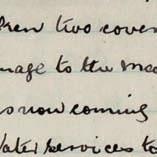 ren two cover
mage to the mea
is now coming
Water services to